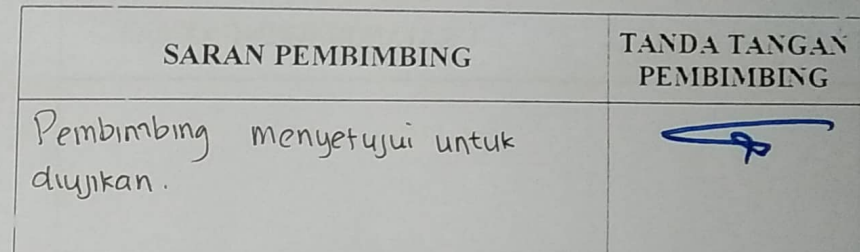 SARAN PEMBIMBING
TANDA TANGAN
PEMBIMBING
Pembimbing menyetujui untuk
diujikan.